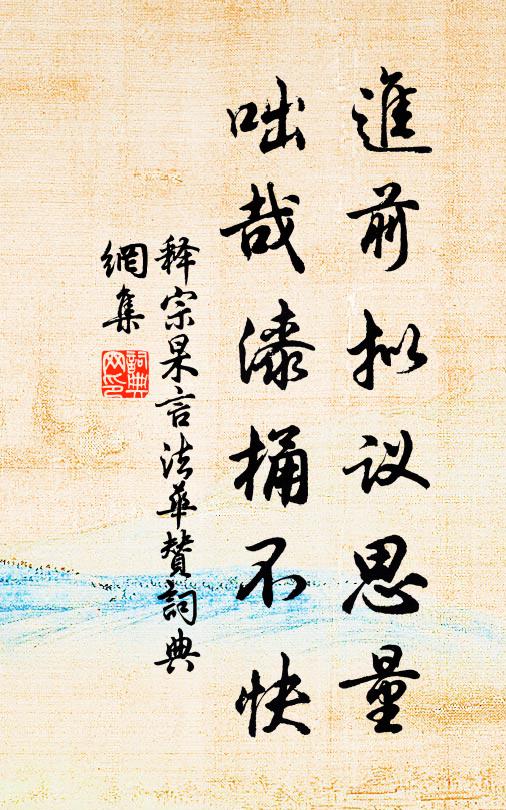 進前拟议思量
咄哉漆桶不快
释宗杲言法華賛詞典
網集
詞典
网印